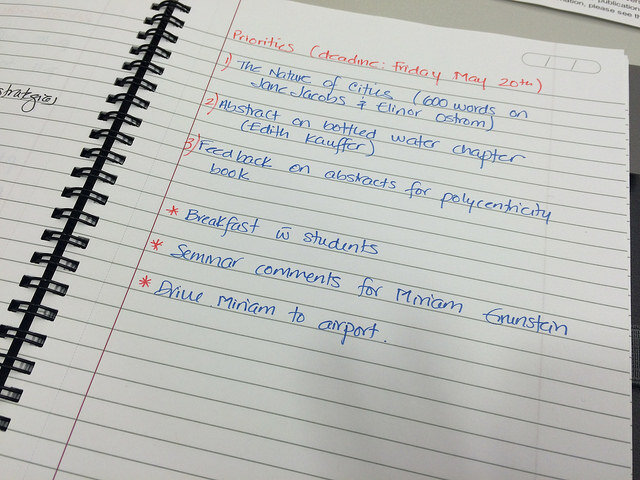 publication
mation, please see th
strategies
Priorities (deadline: Friday May 20th)
1) The Nature of Cities (600 words on
Jane Jacobs & Elinor Ostrom)
2) Abstract on bottled water chapter
(Edith Kauffer)
3) Feedback on abstracts for polycentricity
book
* Breakfast w̄ students
* Seminar comments for Miriam Grunstein
* Drive Miriam to airport.